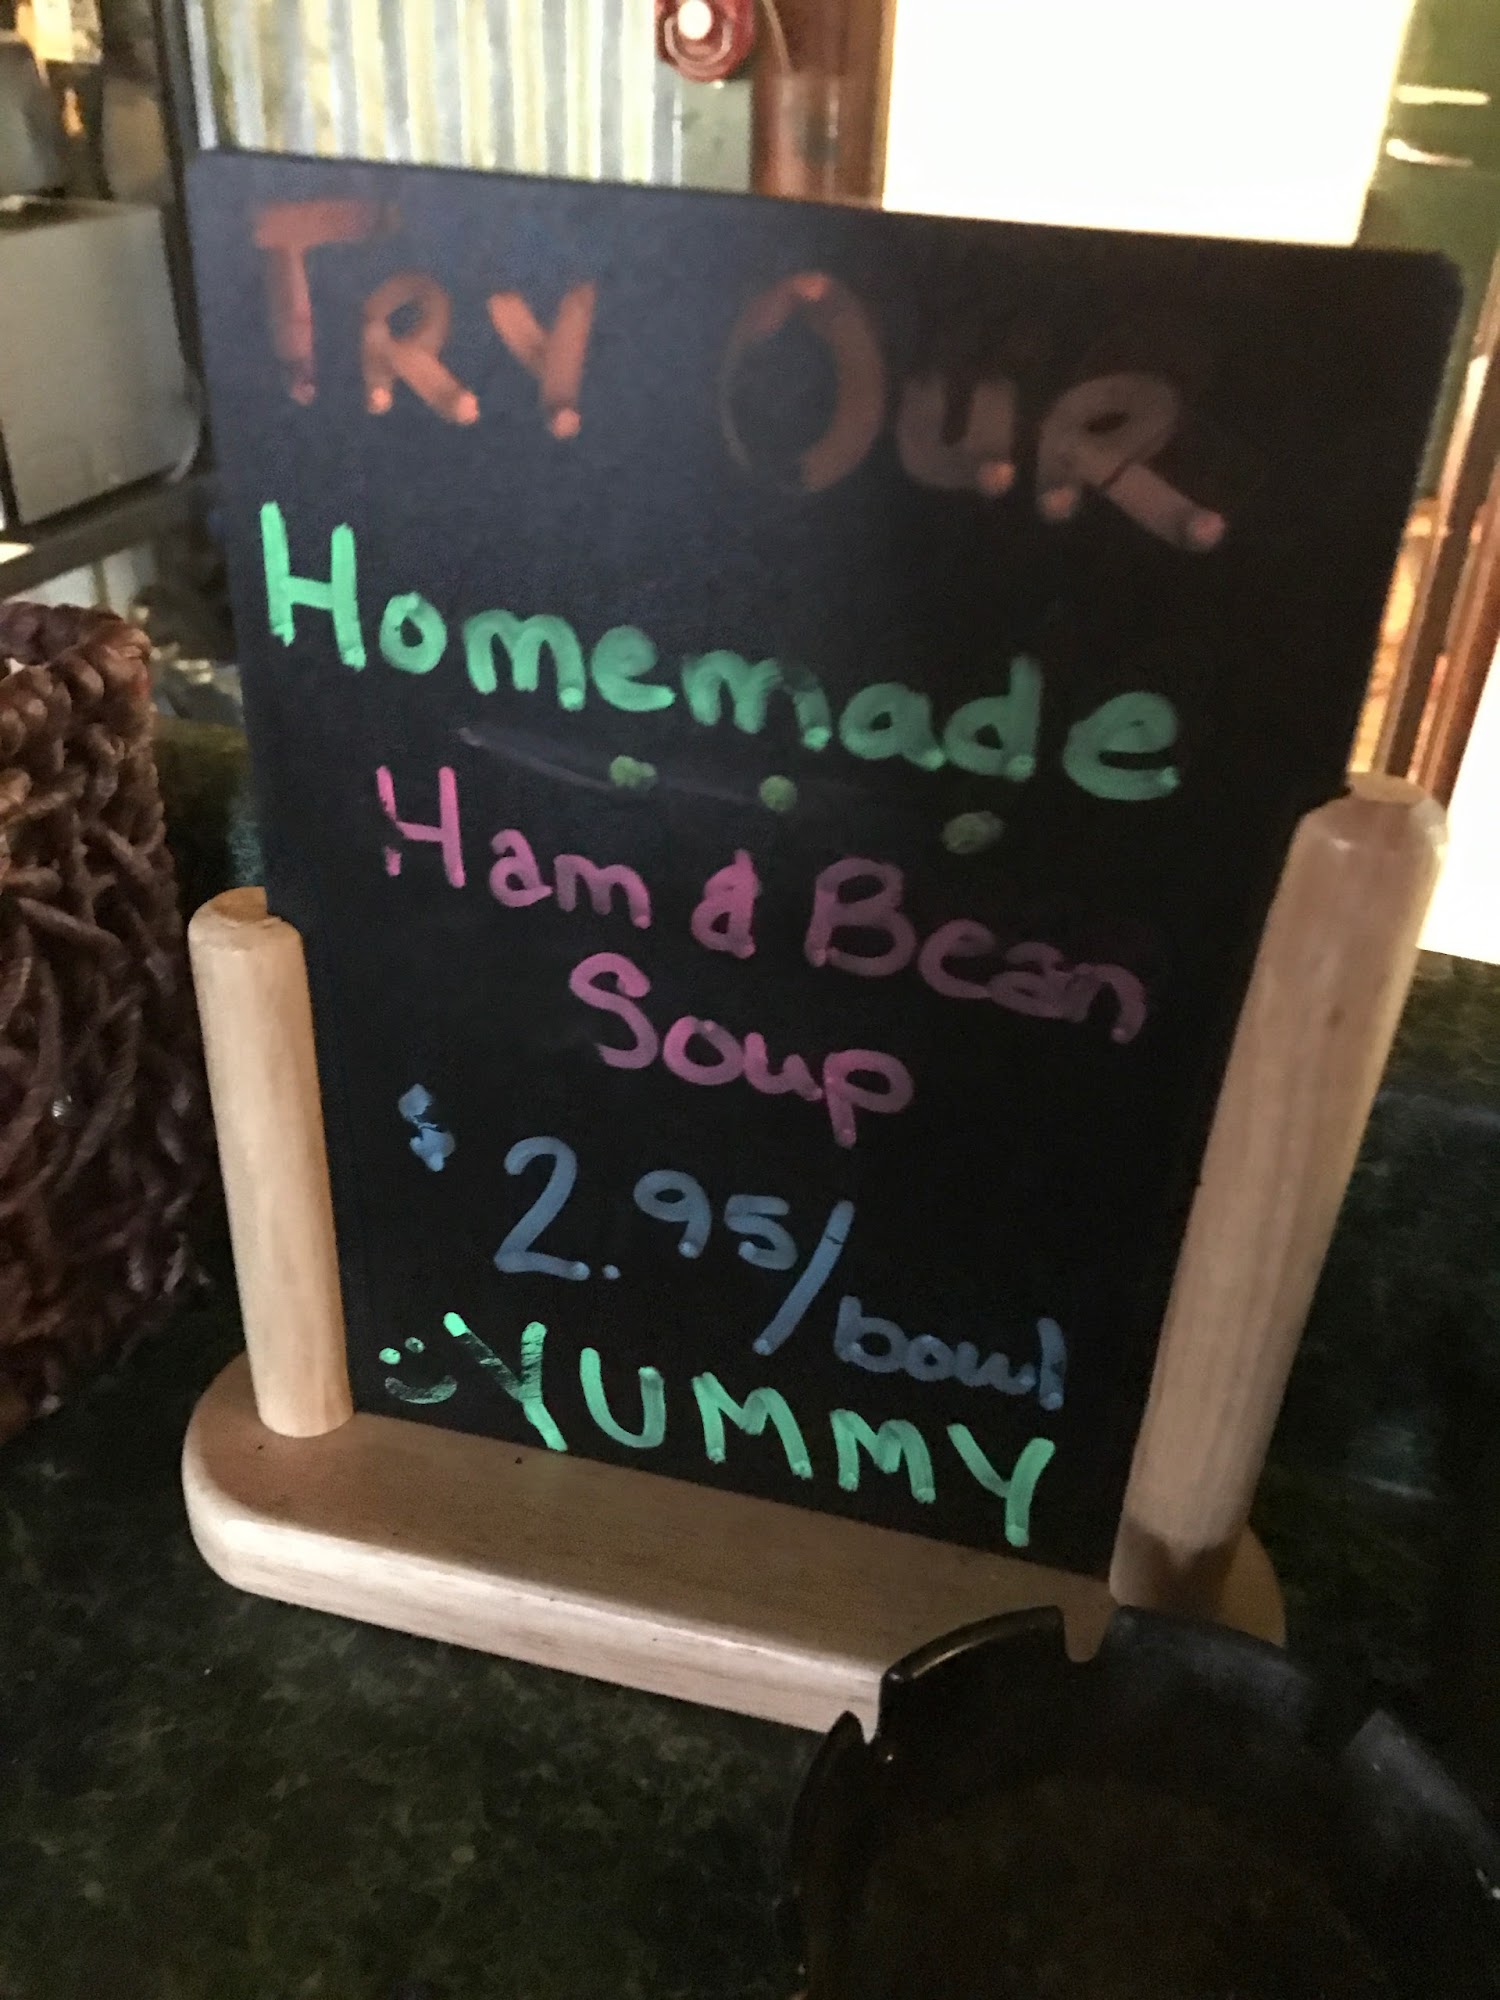 TRY OUR
Homemade
Ham & Bean
Soup
$2.95/bowl
YUMMY